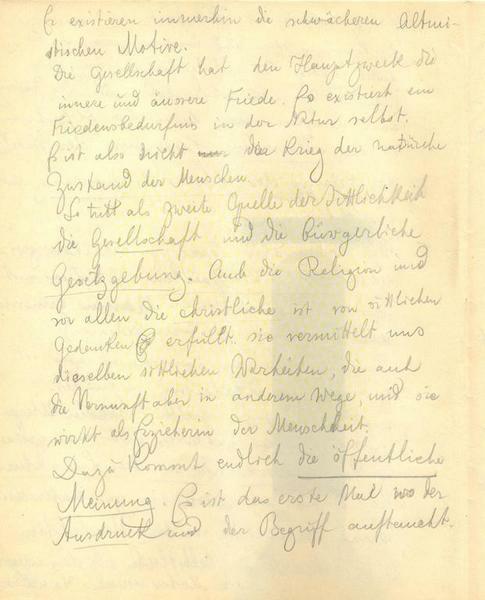 Es existieren immerhin die schwächeren Altrui-
stischen Motive.
Die Gesellschaft hat den Hauptzweck die
innere und äussere Friede. Es existiert ein
Friedensbedürfnis in der Natur selbst.
Es ist also nicht der Krieg der natürliche
Zustand der Menschen.
Es tritt als zweite Quelle der Sittlichkeit
die Gesellschaft und die bürgerliche
Gesetzgebung. Auch die Religion und
vor allen die christliche ist von sittlichen
Gedanken erfüllt. sie vermittelt uns
dieselben sittlichen Warheiten, die auch
die Vernunft aber in anderem Wege, und sie
wirkt als Erzieherin der Menschheit.
Dazu kommt endlich die öffentliche
Meinung. Es ist das erste Mal wo der
Ausdruck und der Begriff auftaucht.